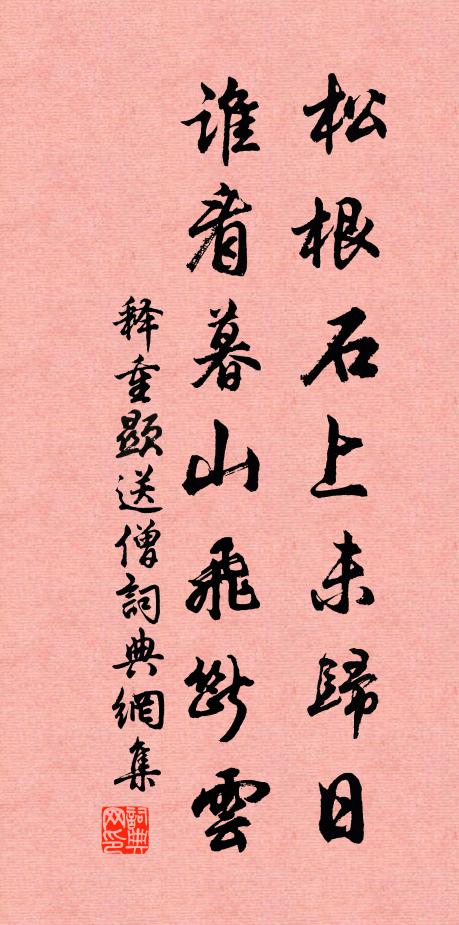 松根石上未歸日
誰看暮山飛斷雲
释重顯送僧詞典網集
詞典網印